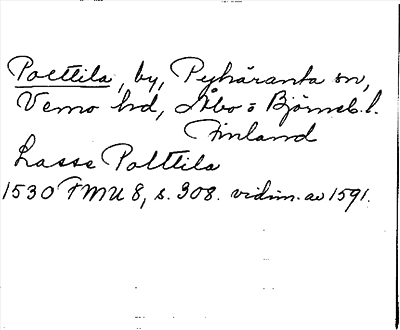 Polttila, by, Pyhäranta sn,
Vemo hd, Åbo o Björneb. l.
Finland
Lasse Polttila
1530 FMU 8, s. 308. vidim. av 1591.